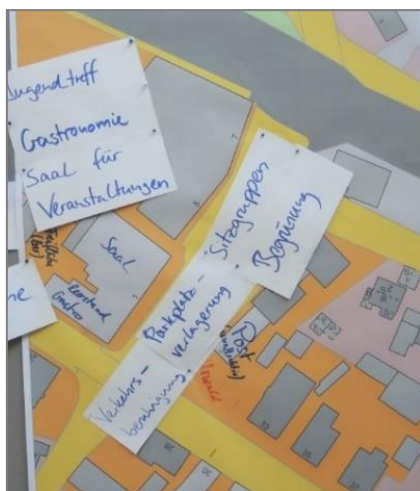 Jugendtreff
Gastronomie
Saal für
Veranstaltungen
Sitzgruppen
Begrünung
Saal
Parkplatz-
verlagerung
Post
Verkehrs-
beruhigung
he
7
33
35
37
26